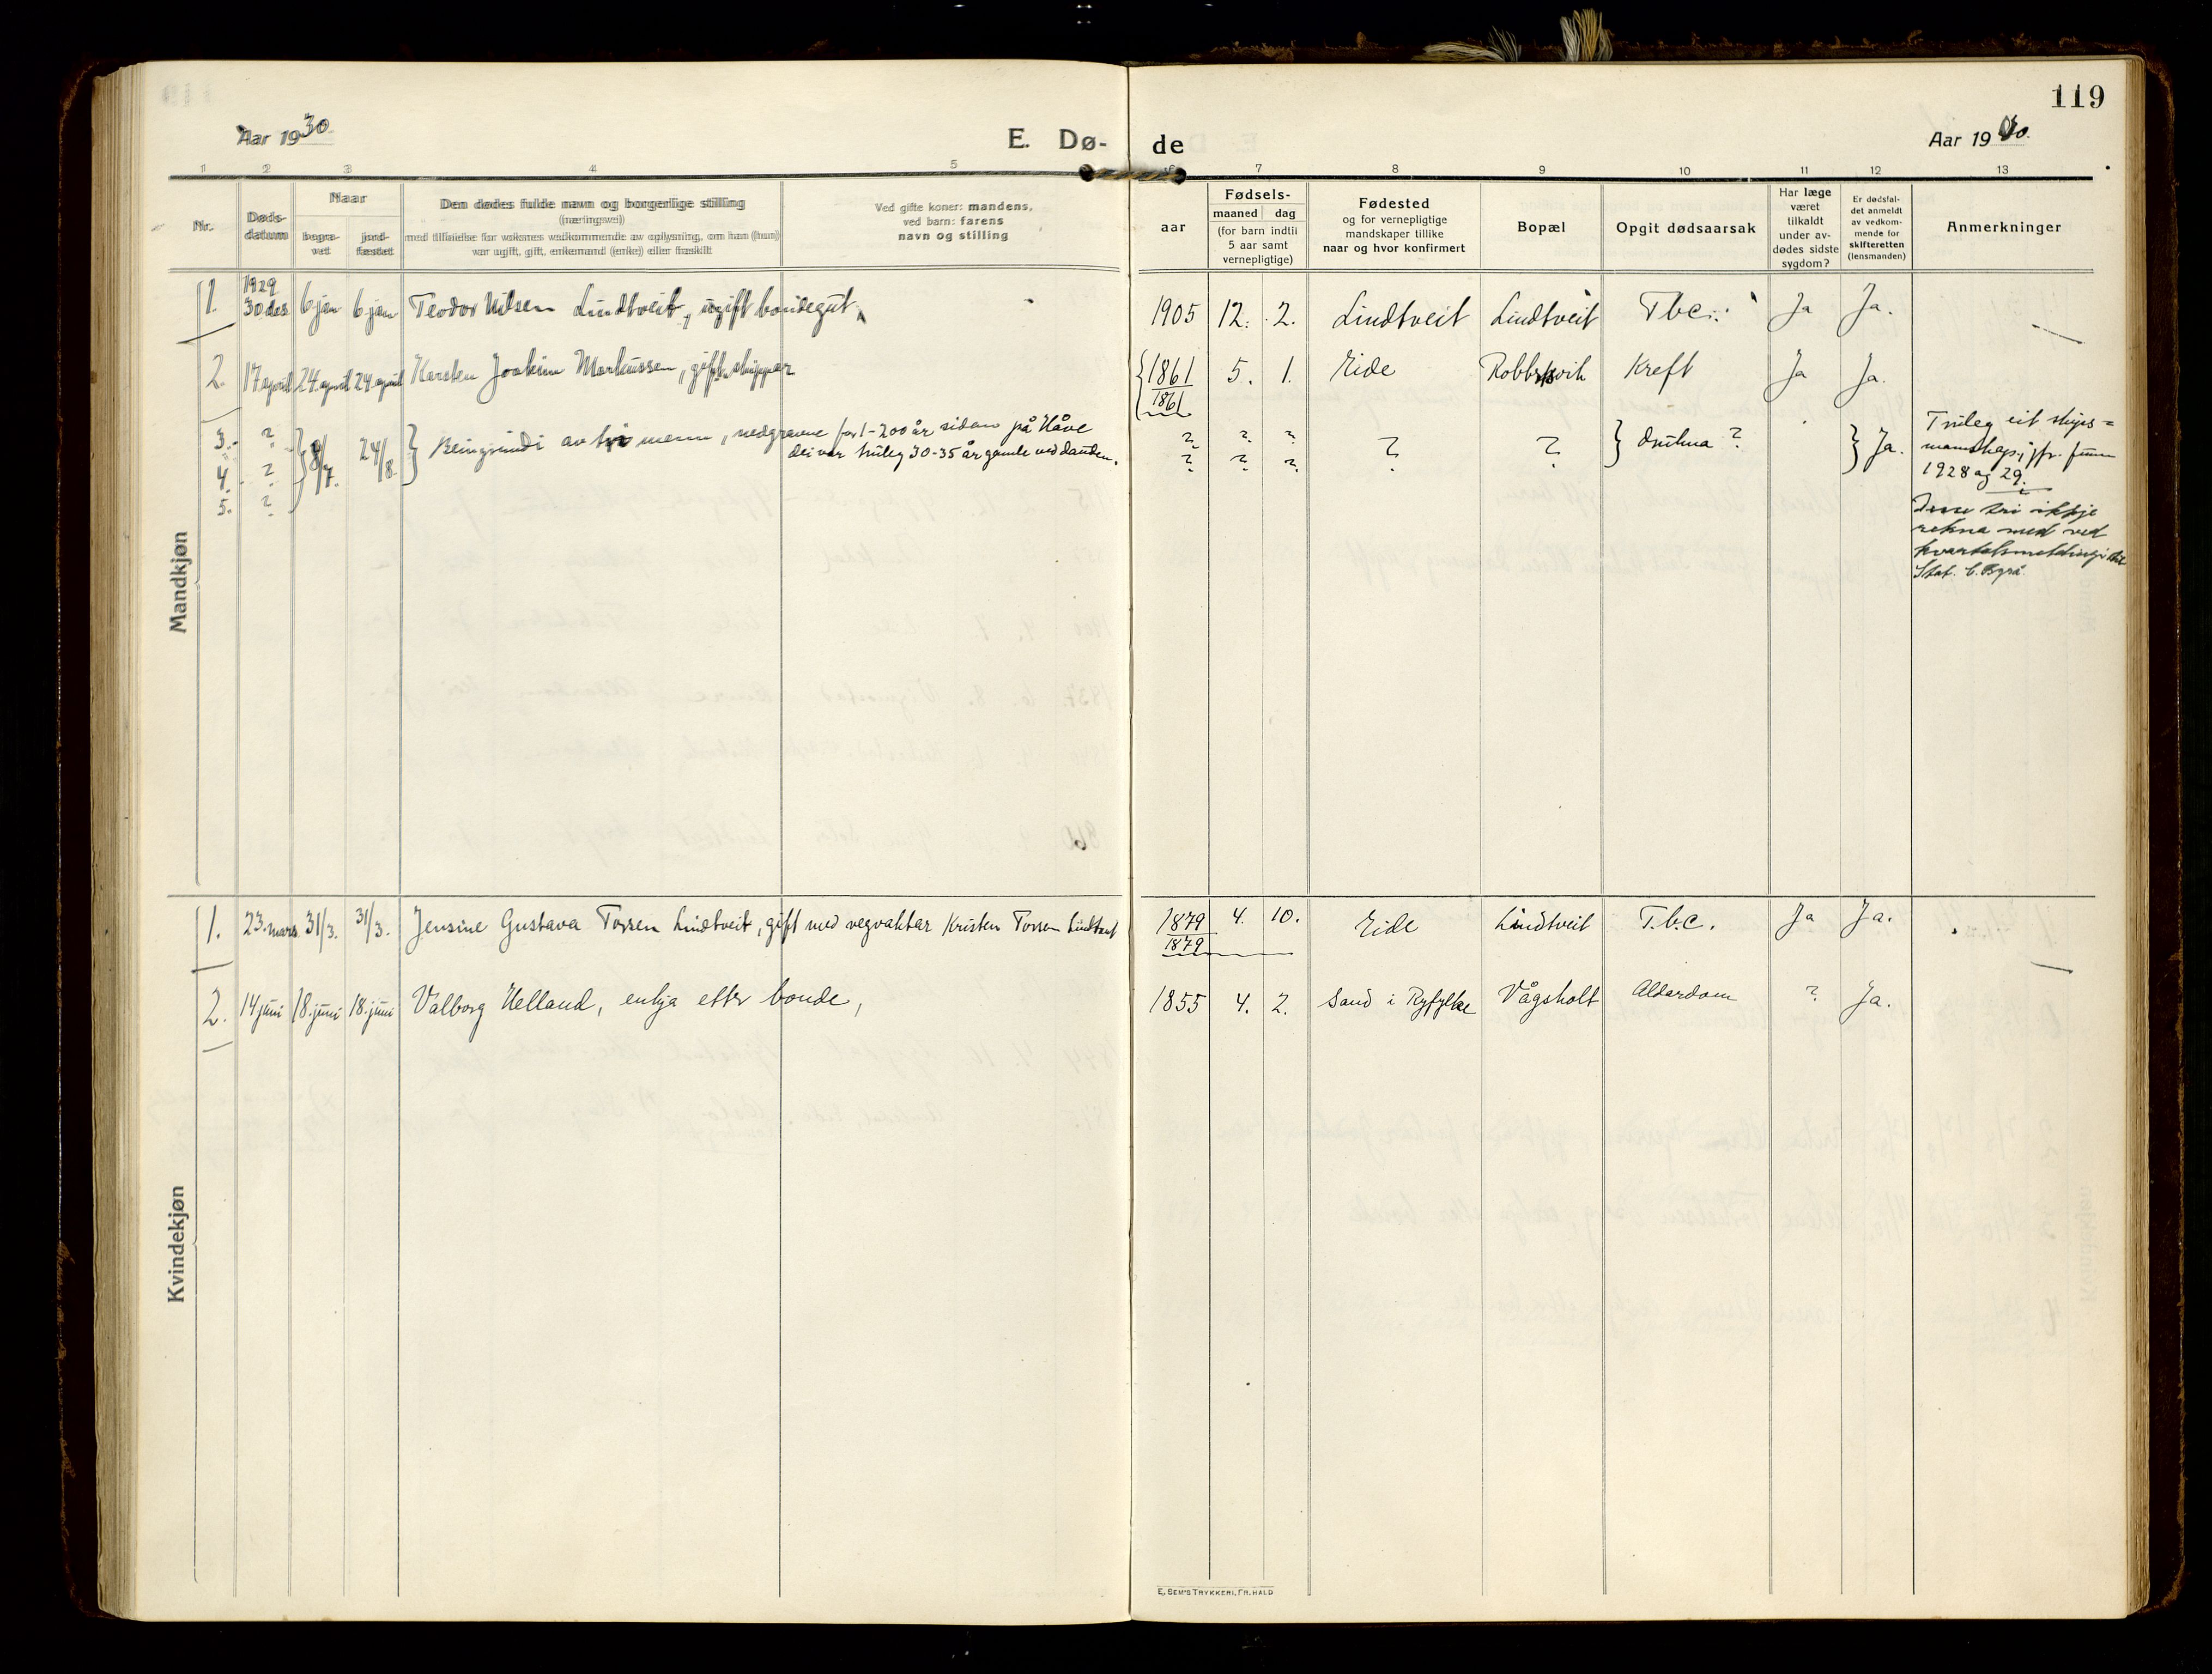 119
Aar 1930
E. Dø-
de
Aar 1930.
1 2 3 4 5 6 7 8 9 10 11 12 13
Nr.
Døds-
datum
Naar
begra-
vet
jord-
fæstet
Den dødes fulde navn og borgerlige stilling
(næringsvei)
med tilføielse for voksnes vedkommende av oplysning, om han (hun)
var ugift, gift, enkemand (enke) eller fraskilt
Ved gifte koner: mandens,
ved barn: farens
navn og stilling
aar
Fødsels-
maaned dag
(for barn indtil
5 aar samt
vernepligtige)
Fødested
og for vernepligtige
mandskaper tillike
naar og hvor konfirmert
Bopæl
Opgit dødsaarsak
Har læge
været
tilkaldt
under av-
dødes sidste
sygdom?
Er dødsfal-
det anmeldt
av vedkom-
mende for
skifteretten
(lensmanden)
Anmerkninger
Mandkjøn
1. 1929 30 des. 6 jan 6 jan Teodor Nilsen Lindtveit, ugift bondegut, 1905 12. 2. Lindtveit Lindtveit Tbc. Ja Ja.
2. 17 april 24. april 24. april Karsten Joakim Markussen, gift skipper 1861 5. 1. Eide Kreft Ja Ja.
1861
3. ? 8/7. 24/8. Beingrindi av tri menn, nedgravne for 1-200 år sidan på Håve ? ? ? ? ? drukna ? Ja. Truleg eit skips=
4. ? dei var truleg 30-35 år gamle ved dauden. ? ? ? mannskap, jfr. funn
1928 og 29.
5. ?
Desse tri ikkje
rekna med ved
kvartalsmeldingi til
Stat. C. Byrå.
Kvindekjøn
1. 23. mars 31/3. 31/3. Jensine Gustava Torsen Lindtveit, gift med vegvaktar Kristen Torsen Lindtveit 1879 4. 10. Eide Lindtveit T.b.c. Ja Ja.
1879
2. 14 juni 18. juni 18. juni Valborg Helland, enkja etter bonde, 1855 4. 2. Sand i Ryfylke Vågsholt Alderdom ? Ja.
E. SEM'S TRYKKERI, FR.HALD